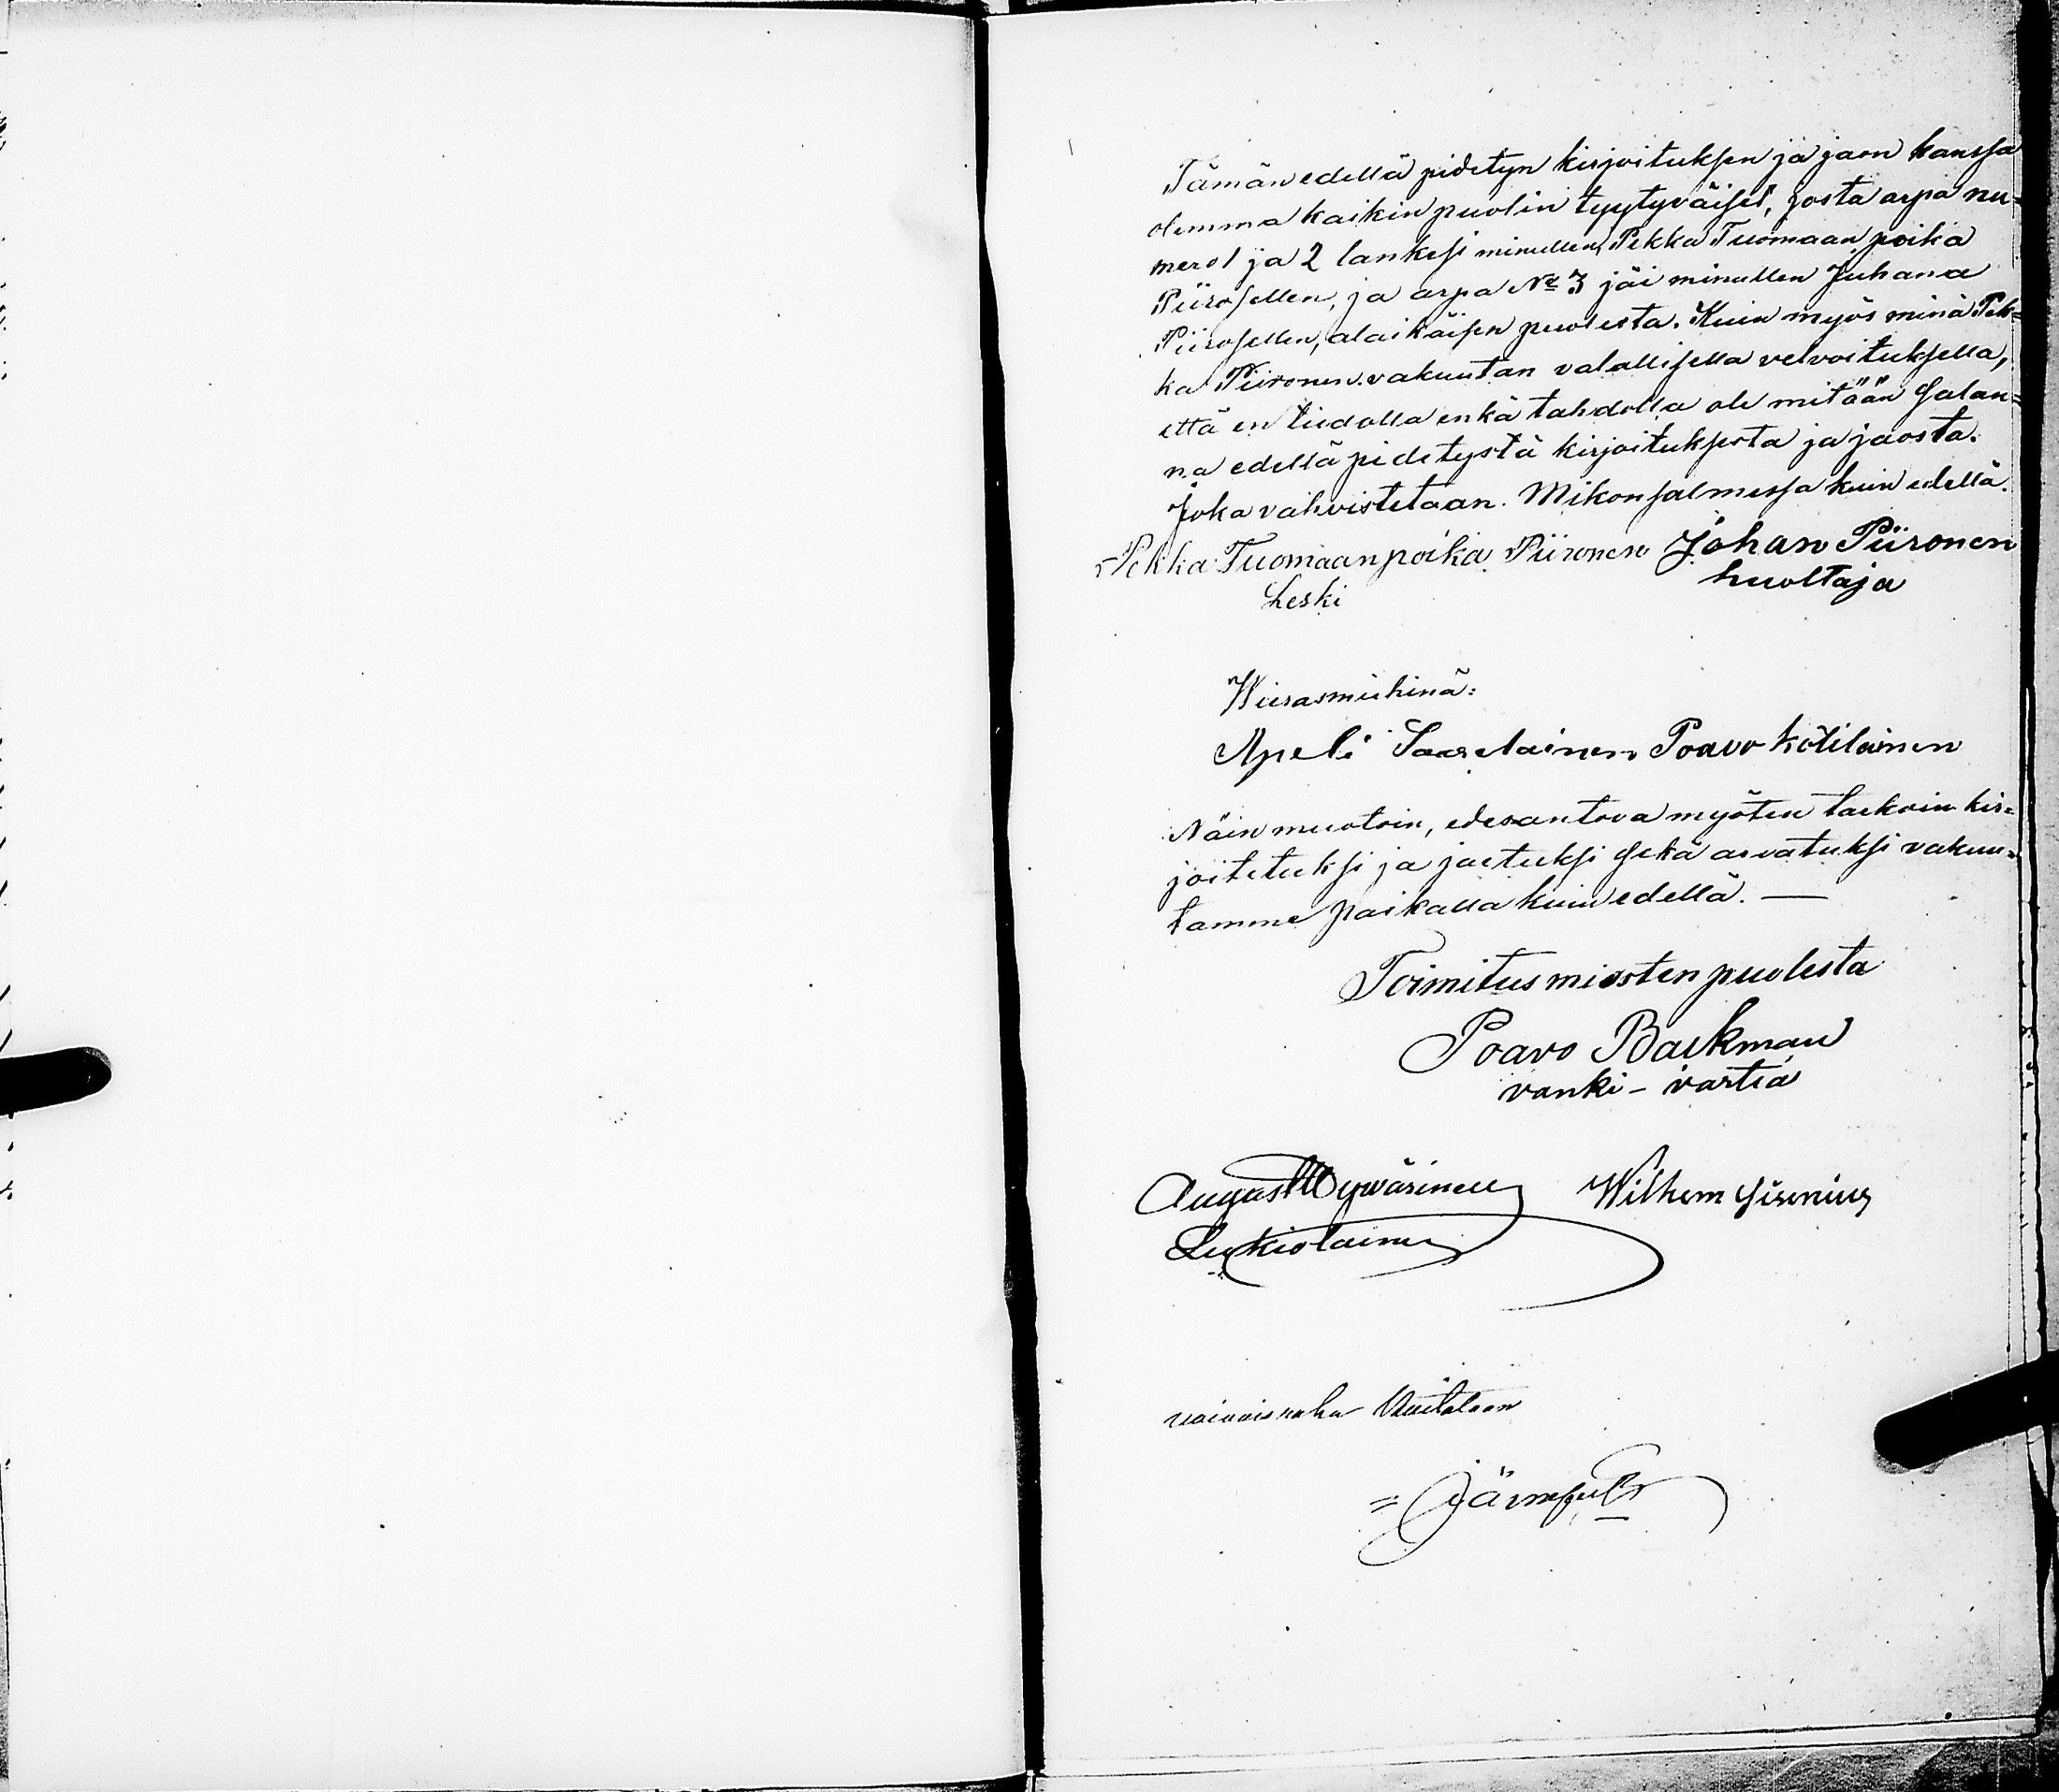 Tämän edellä pidetyn kirjoituksen ja jaon kanssa
olemma kaikin puolin tyytyväiset, josta arpa nu=
mero 1 ja 2 lankesi minullen, Pekka Tuomaan poika
Piirosellen, ja arpa No 3 jäi minullen Juhana
Piirosellen, alaikäisen puolesta. Kuin myös minä Pek=
ka Piironen vakuutan valallisella velvoituksella,
että en tiedolla enkä tahdolla ole mitään salan=
na edellä pidetystä kirjoituksesta ja jaosta.
Joka vahvistetaan. Mikonsalmessa kuin edellä.
Pekka Tuomaanpoika Piironen Johan Piironen
Leski huoltaja
Wierasmiehinä:
Apeli Saarelainen Poavo Kötiläinen
Näin muotoin, edesantova myöten tarkoin kir=
joitetuksi ja jaetuksi sekä arvatuksi vakuu=
tamme paikalla kuin edellä. —
Toimitusmiesten puolesta
Poavo Backman
vanki - vartia
August Hywärinen Wilhem Sirenius
Lukkiolainen
vaivais raha